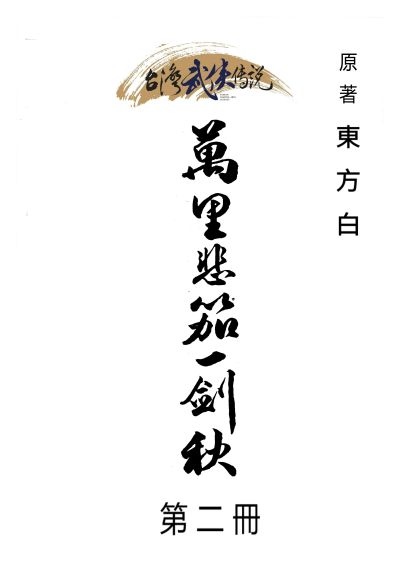 台湾武侠传说
原著 東方白
萬里悲笳一劍秋
第二冊